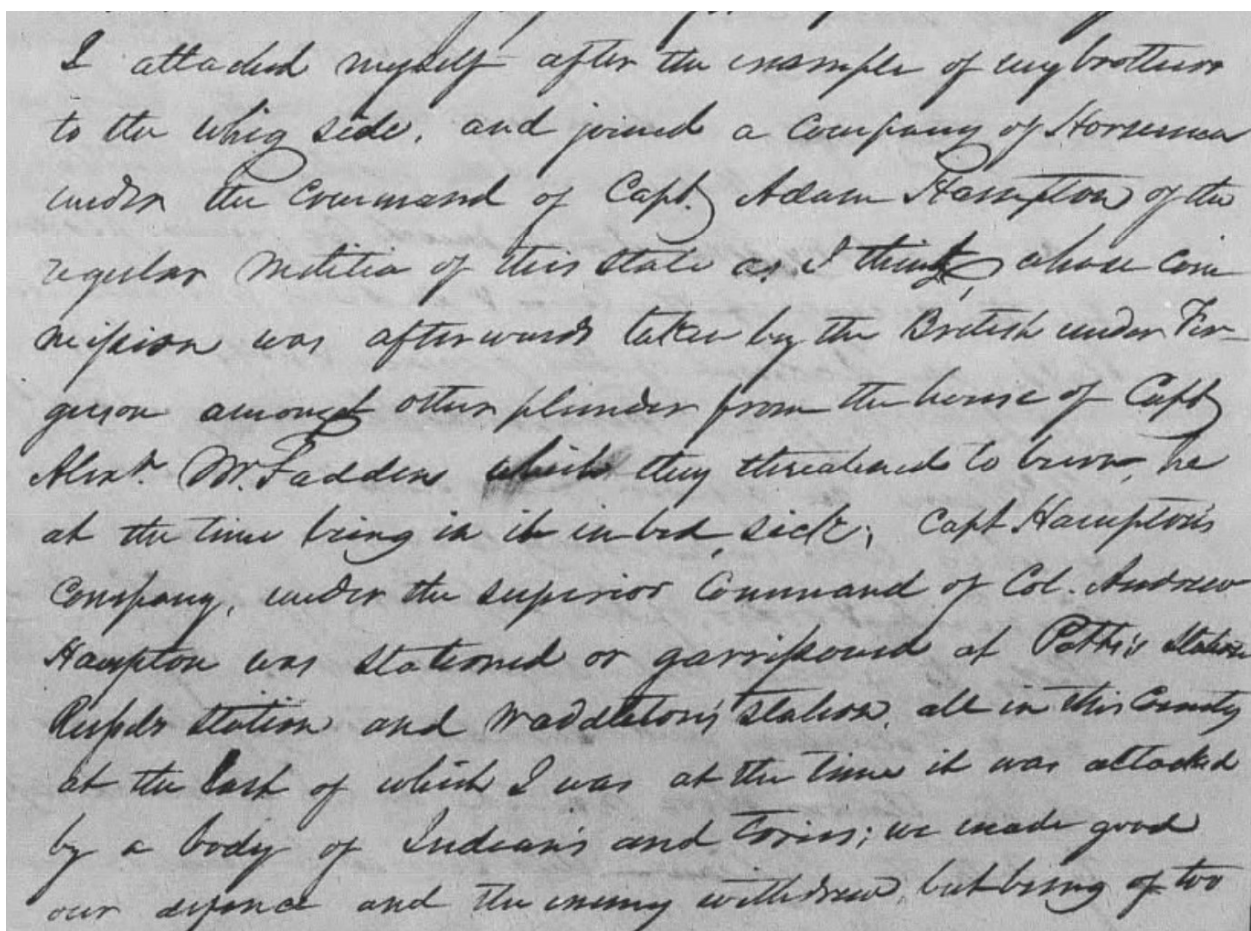 I attached myself after the example of my brothers
to the Whig side, and joined a Company of Horsemen
under the Command of Capt. Adam Hampton of the
regular Militia of this State as I think, whose com
mission was afterwards taken by the British under Fer-
guson amongst other plunder from the house of Capt
Alexr. McFadden which they threatened to burn, he
at the time being in it in bed, sick; Capt Hampton's
Company, under the superior Command of Col. Andrew
Hampton was stationed or garrisoned at Potts's Station
Russels Station and Waddleton's Station, all in this County
at the last of which I was at the time it was attacked
by a body of Indians and Tories; we made good
our defence and the enemy withdrew, but being of too